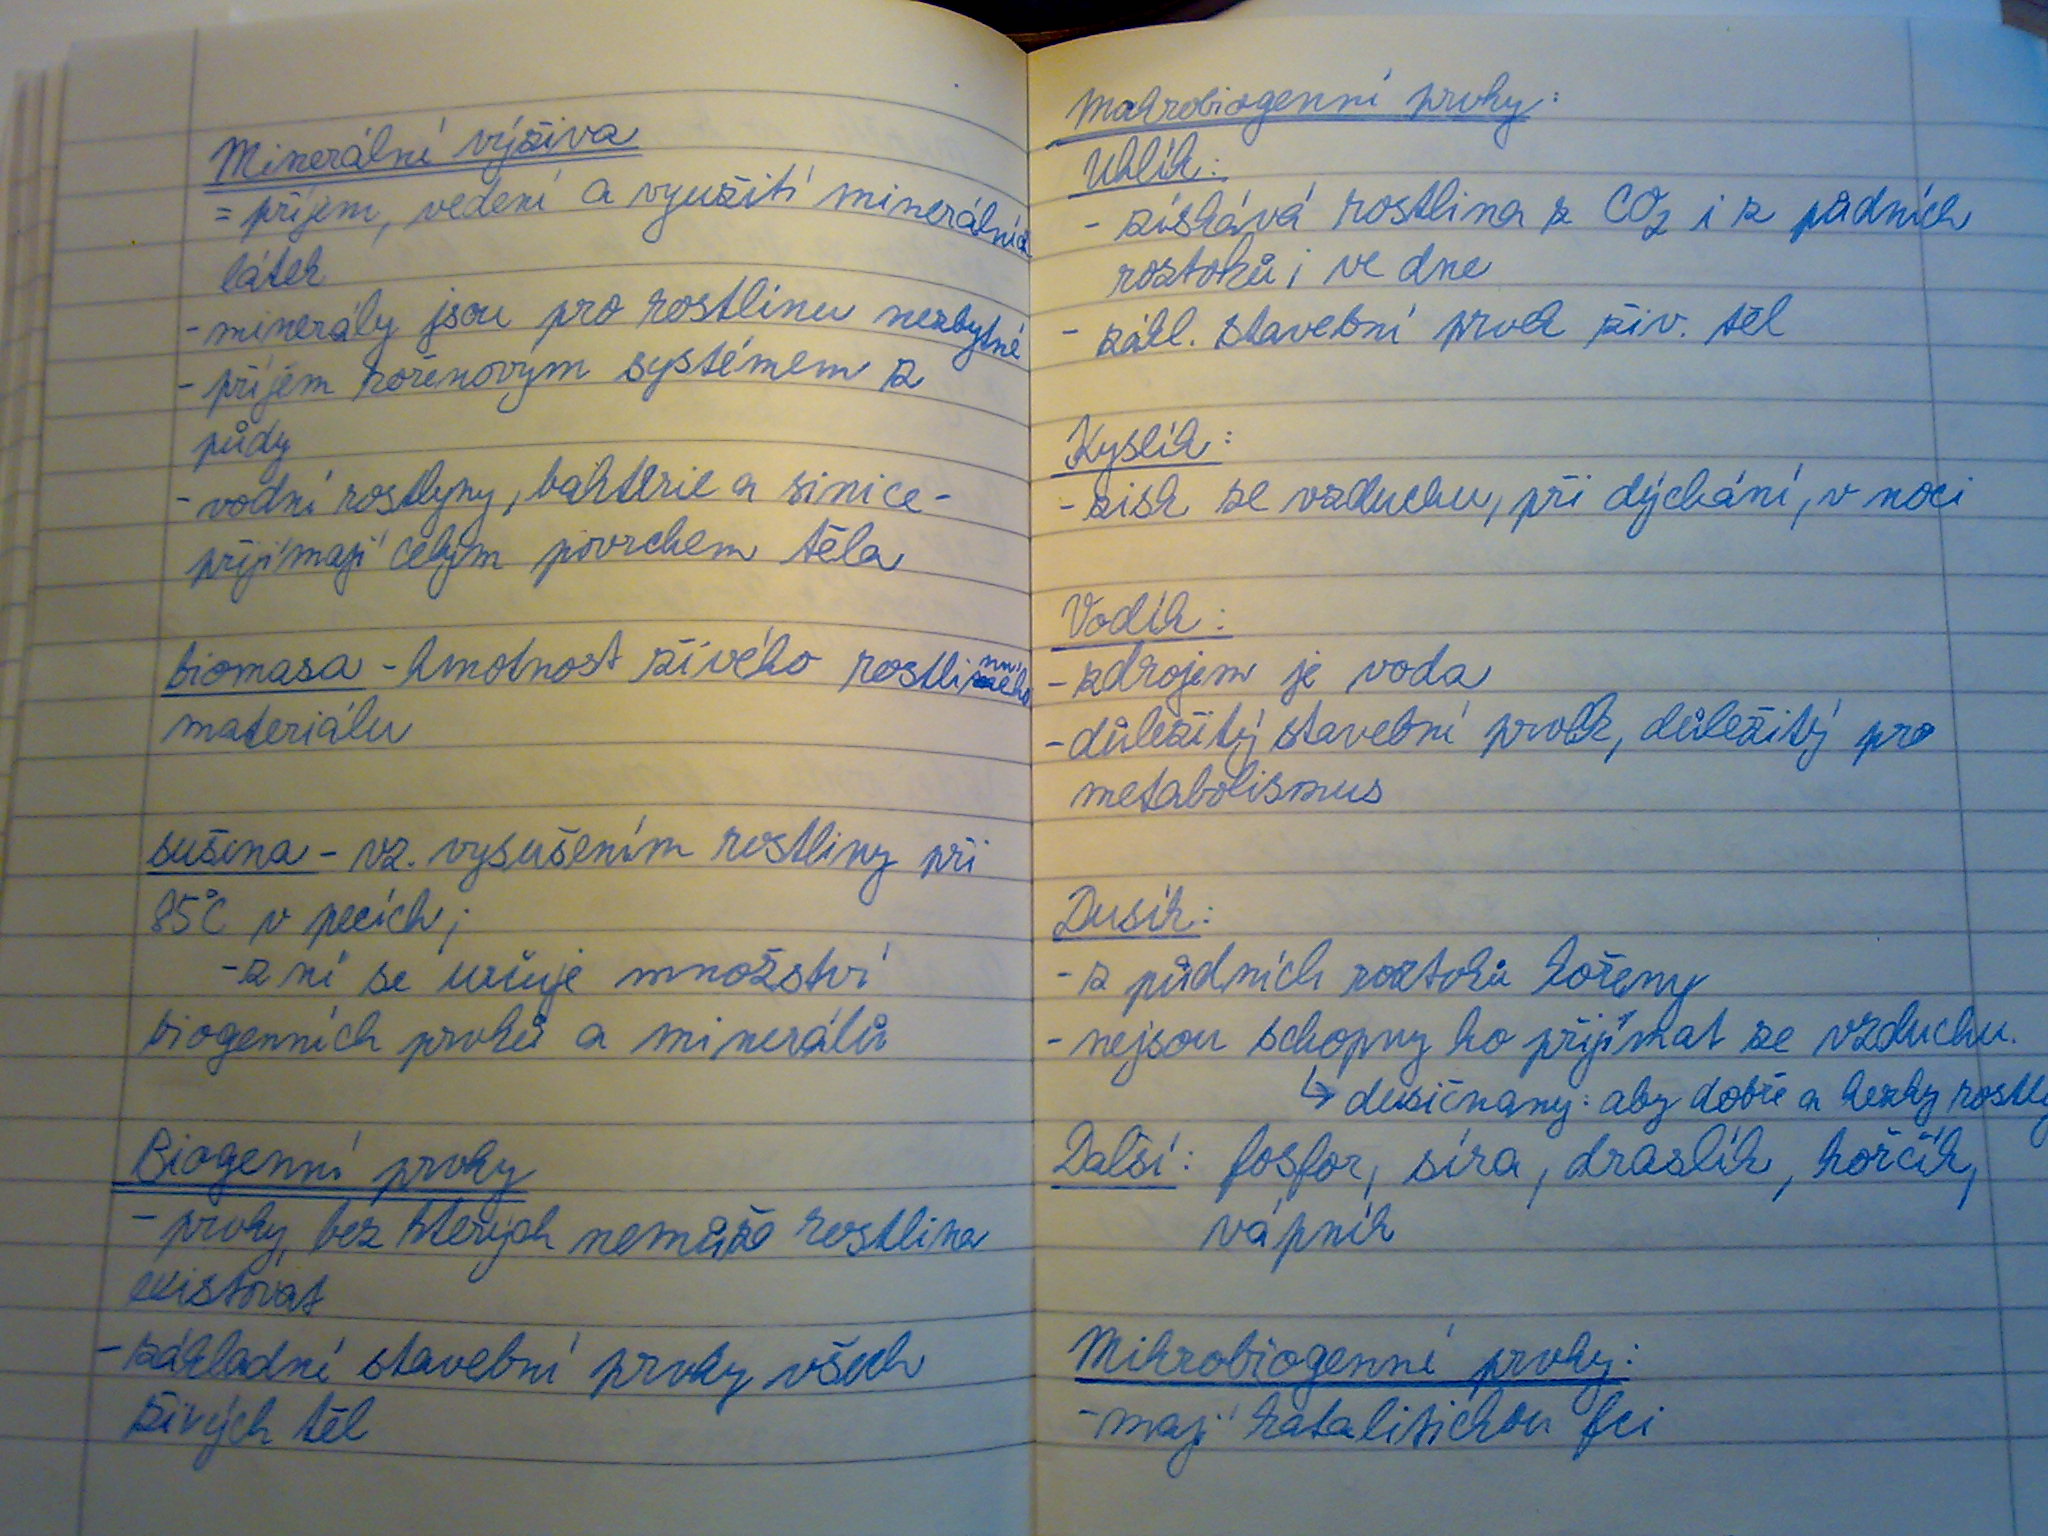 Minerální výživa
= příjem, vedení a využití minerálních
látek
- minerály jsou pro rostlinu nezbytné
- příjem kořenovým systémem z
půdy
- vodní rostlyny, baktérie a sinice -
přijímají celým povrchem těla
biomasa - hmotnost živého rostlinného
materiálu
sušina - vz. vysušením rostliny při
85°C v pecích;
- z ní se určuje množství
biogenních prvků a minerálů
Biogenní prvky
- prvky, bez kterých nemůže rostlina
existovat
- základní stavební prvky všech
živých těl
Makrobiogenní prvky:
Uhlík:
- získává rostlina z CO2 i z půdních
roztoků; ve dne
- zákl. stavební prvek živ. těl
Kyslík:
- zisk ze vzduchu, při dýchání, v noci
Vodík:
- zdrojem je voda
- důležitý stavební prvek, důležitý pro
metabolismus
Dusík:
- z půdních roztoků kořeny
- nejsou schopny ho přijímat ze vzduchu.
↳ dusičnany: aby dobře a hezky rostly
Další: fosfor, síra, draslík, hořčík,
vápník
Mikrobiogenní prvky:
- mají katalitickou fci